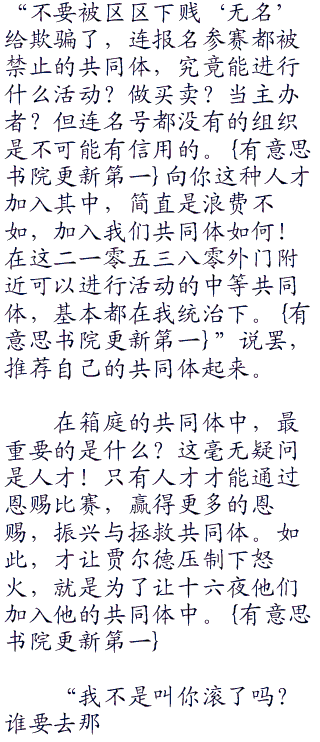 “不要被区区下贱‘无名’
给欺骗了，连报名参赛都被
禁止的共同体，究竟能进行
什么活动？做买卖？当主办
者？但连名号都没有的组织
是不可能有信用的。{有意思
书院更新第一}向你这种人才
加入其中，简直是浪费不
如，加入我们共同体如何！
在这二一零五三八零外门附
近可以进行活动的中等共同
体，基本都在我统治下。{有
意思书院更新第一}”说罢，
推荐自己的共同体起来。
在箱庭的共同体中，最
重要的是什么？这毫无疑问
是人才！只有人才才能通过
恩赐比赛，赢得更多的恩
赐，振兴与拯救共同体。如
此，才让贾尔德压制下怒
火，就是为了让十六夜他们
加入他的共同体中。{有意思
书院更新第一}
“我不是叫你滚了吗？
谁要去那